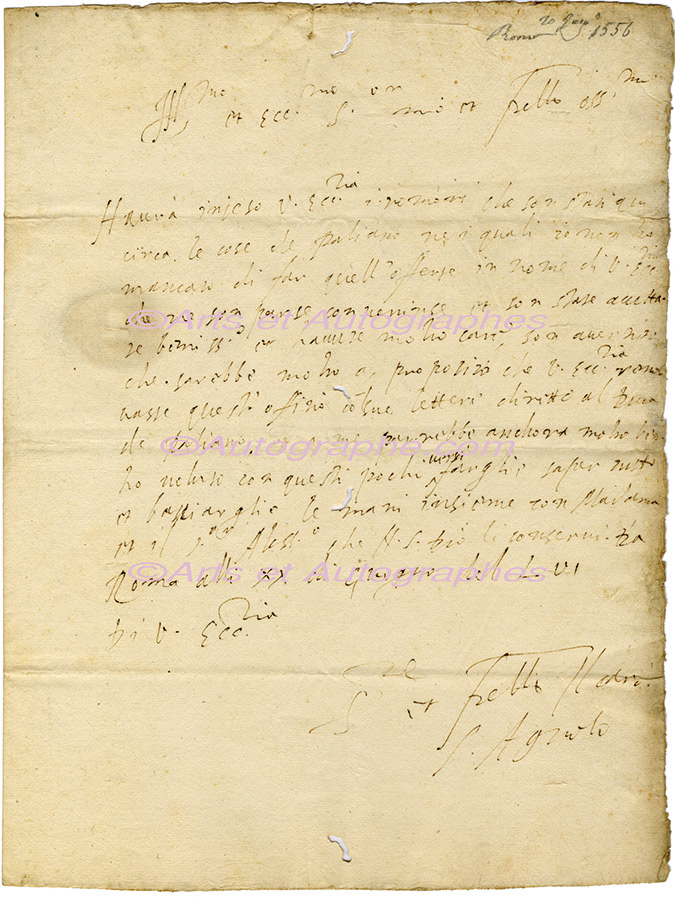 Roma 20 Giug.º 1556
Ill.mo et Ecc.mo S.or mio et fr̃ello oss.mo
Havrà inteso V. Ecc.tia i romori che son stati qui
circa le cose di paliano ne i quali io non ho
mancato di far quell'offerte in nome di V. Ecc.tia
che ne son parse conveniente et son state accetta-
te beniss.º et havute molto care, son
che sarebbe molto a proposito che V. Ecc.tia
vasse quest'offitio co sue lettere diritte al Duca
di paliano, et a mi parrebbe anchora molto ben
ho voluto con questi pochi versi fargli saper tutto
et basciargli le mani insieme con Madama
et il S.or Aless.º che N. S. Dio li conservi. Da
Roma alli XX di Giugno del LVI
Di V. Ecc.tia
S.re et fr̃ello
S. Agnolo
©Arts et Autographes
©Autographe.com
©Arts et Autographes